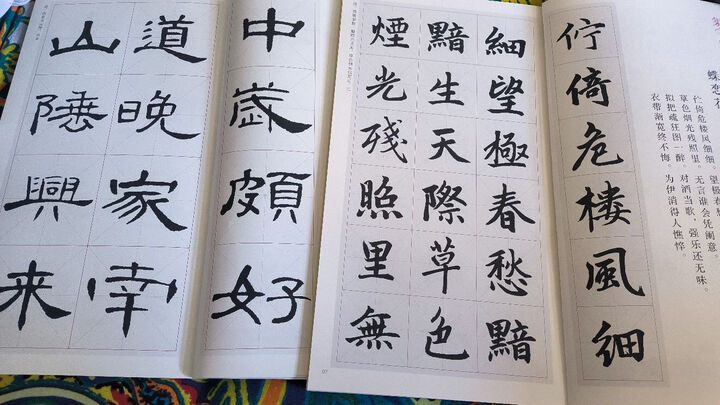 蝶恋
伫倚危楼风细细。望极春
草色烟光残照里。无言谁会凭阑意。
拟把疏狂图一醉。对酒当歌，强乐还无味。
衣带渐宽终不悔。为伊消得人憔悴。
佇倚危楼風細
細望極春愁黯
黯生天際草色
煙光殘照里無
07
中歲頗好
道晚家南
山陲興來